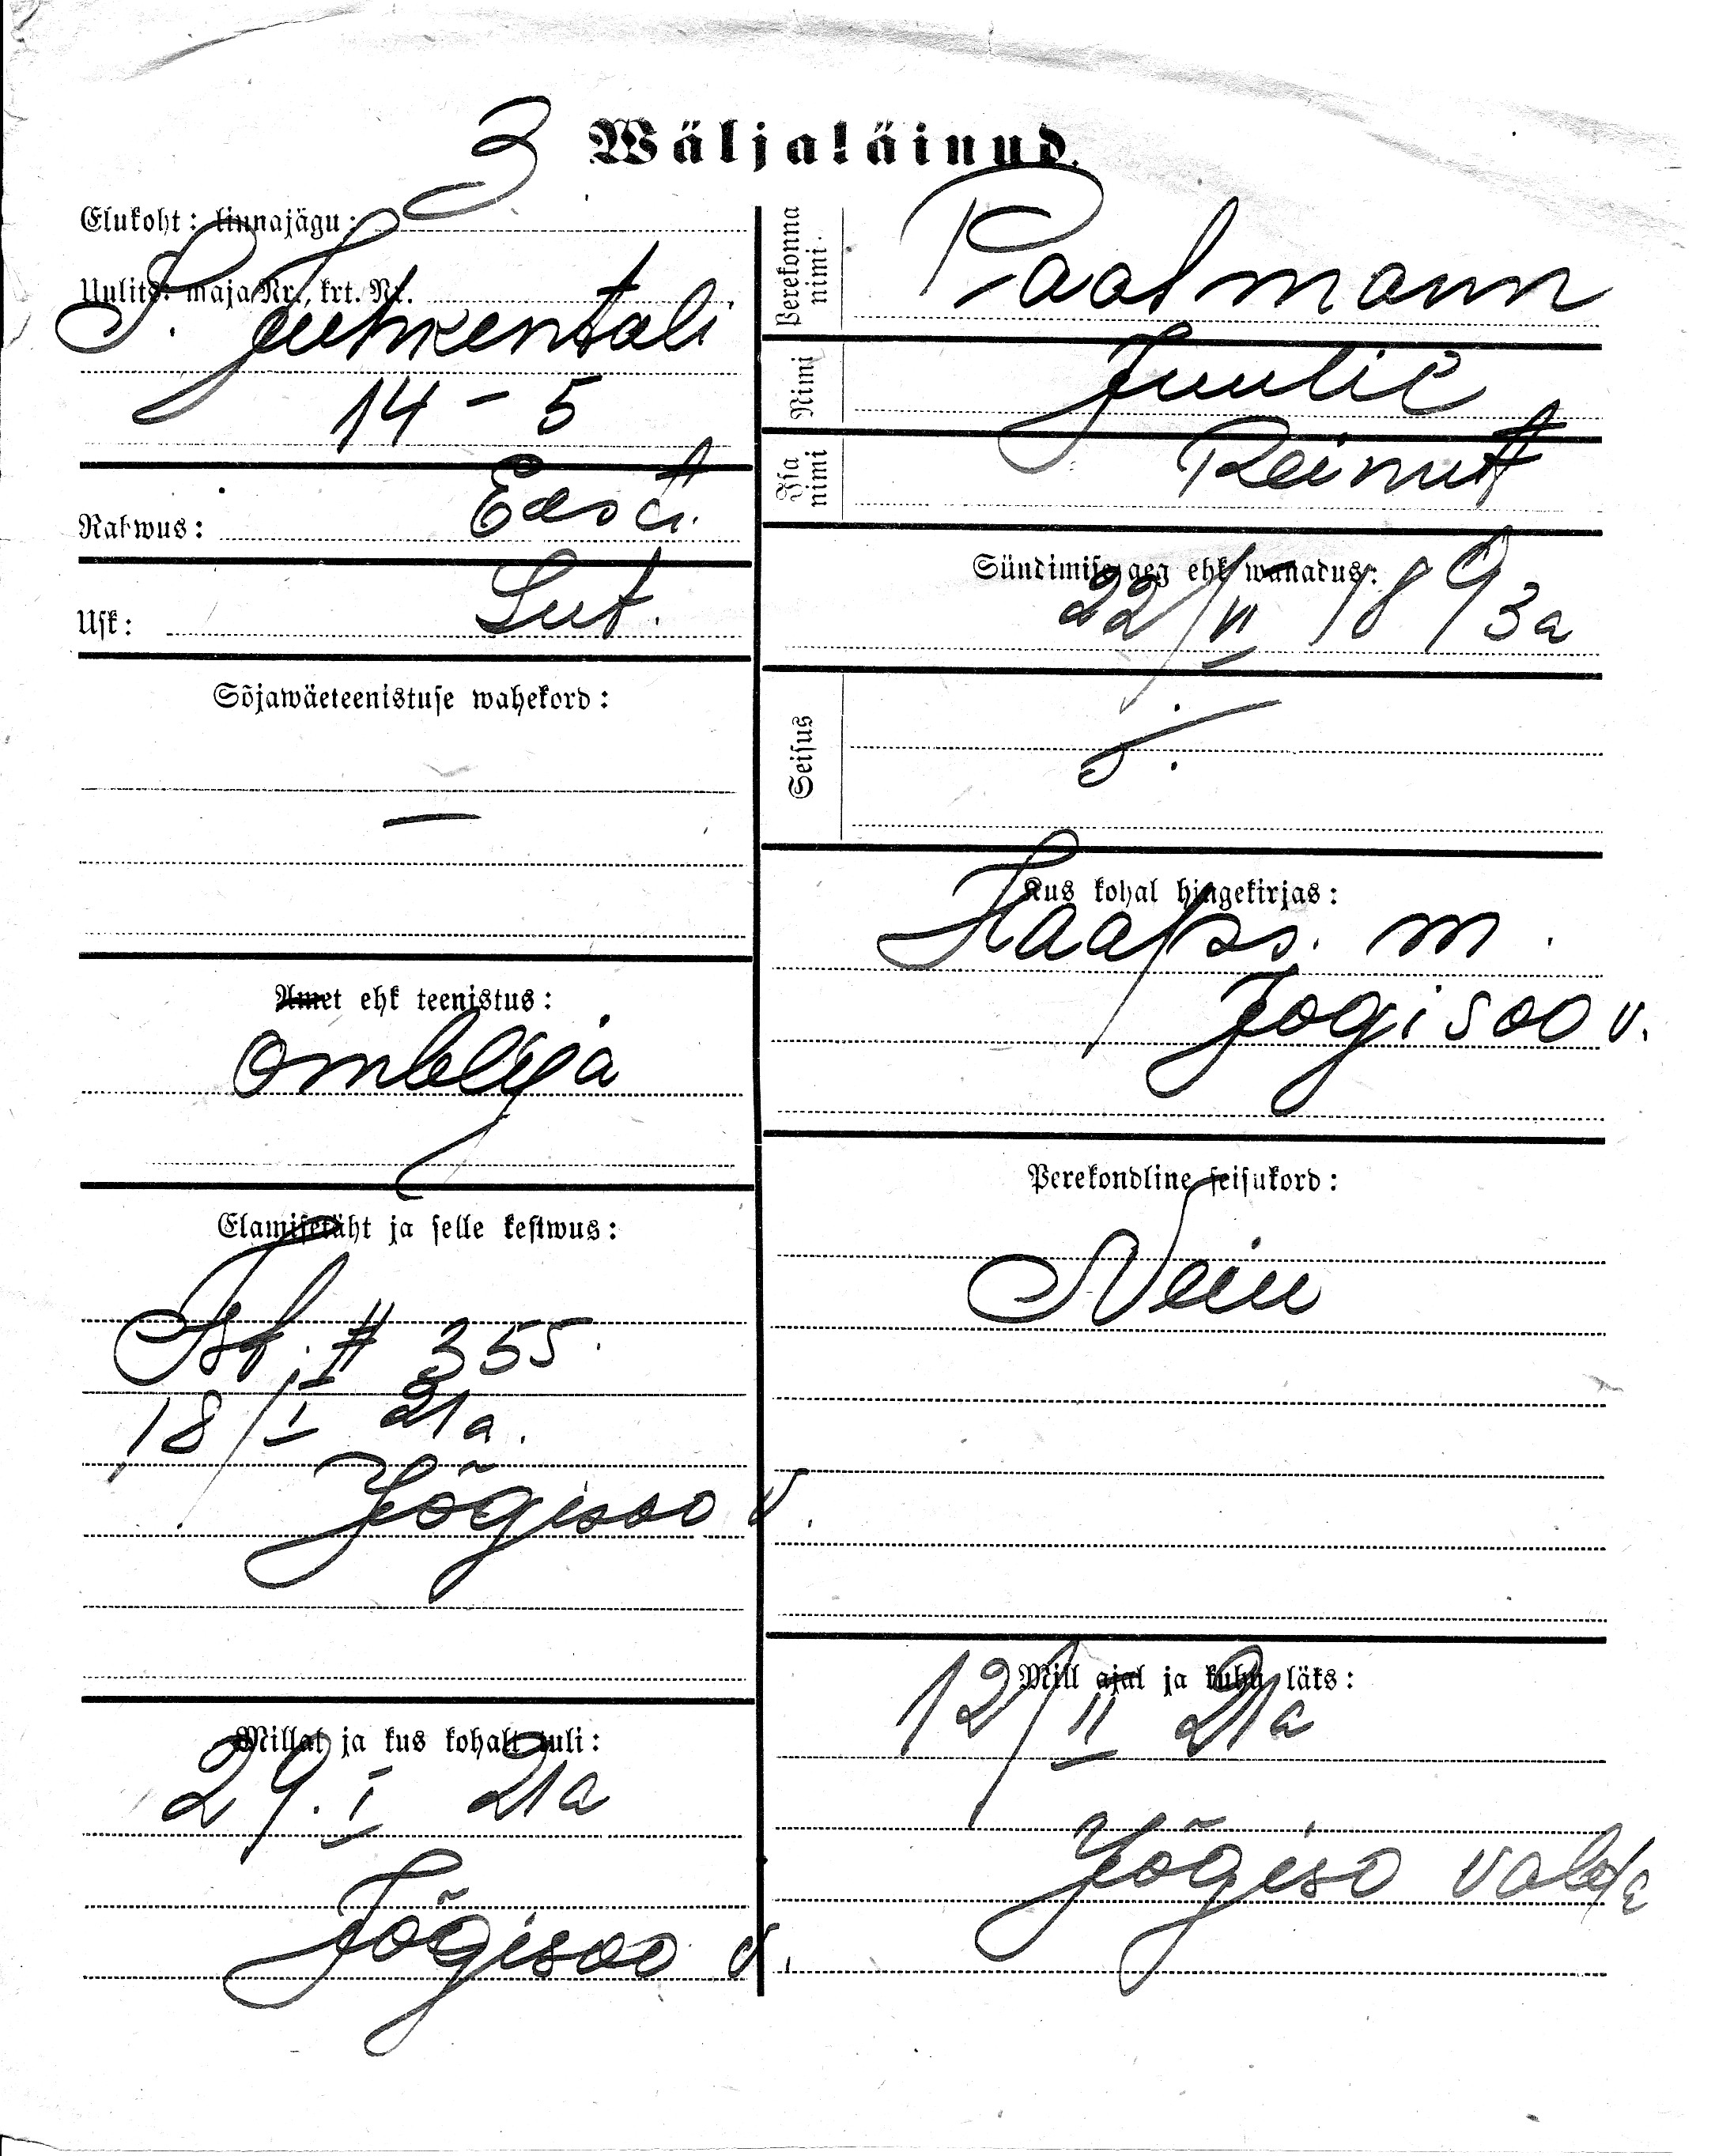 3 Wäljaläinud.
Elukoht: linnajägu:
Uulits: maja Nr., krt. Nr.
S. Juhkentali
14 - 5
Rahwus: Eesti.
Usk: Lut.
Sõjawäeteenistuse wahekord:
—
Amet ehk teenistus:
Ombleja
Elamisetäht ja selle kestwus:
355.
18/I 21 a.
Jõgisoo v.
Millal ja kus kohalt tuli:
29. I 21 a
Jõgisoo v.
Perekonna nimi: Paalmann
Nimi Juulie
Isa nimi Reinut
Sündimise aeg ehk wanadus:
22/VI 1893 a
Seisus
Kus kohal hingekirjas:
Haaps. m.
Jogisoo v.
Perekondline seisukord:
Neiu
Mill ajal ja kuhu läks:
12/II 21 a
Jõgiso valda